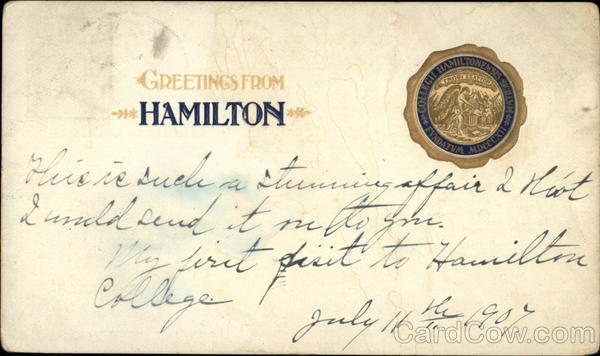 GREETINGS FROM
HAMILTON
COLLEGII HAMILTONENSIS SIGILLVM
FVNDATVM MDCCCXII
This is such a stunning affair I tho't
I would send it on to you.
My first visit to Hamilton
College.
July 11th 1907
CardCow.com